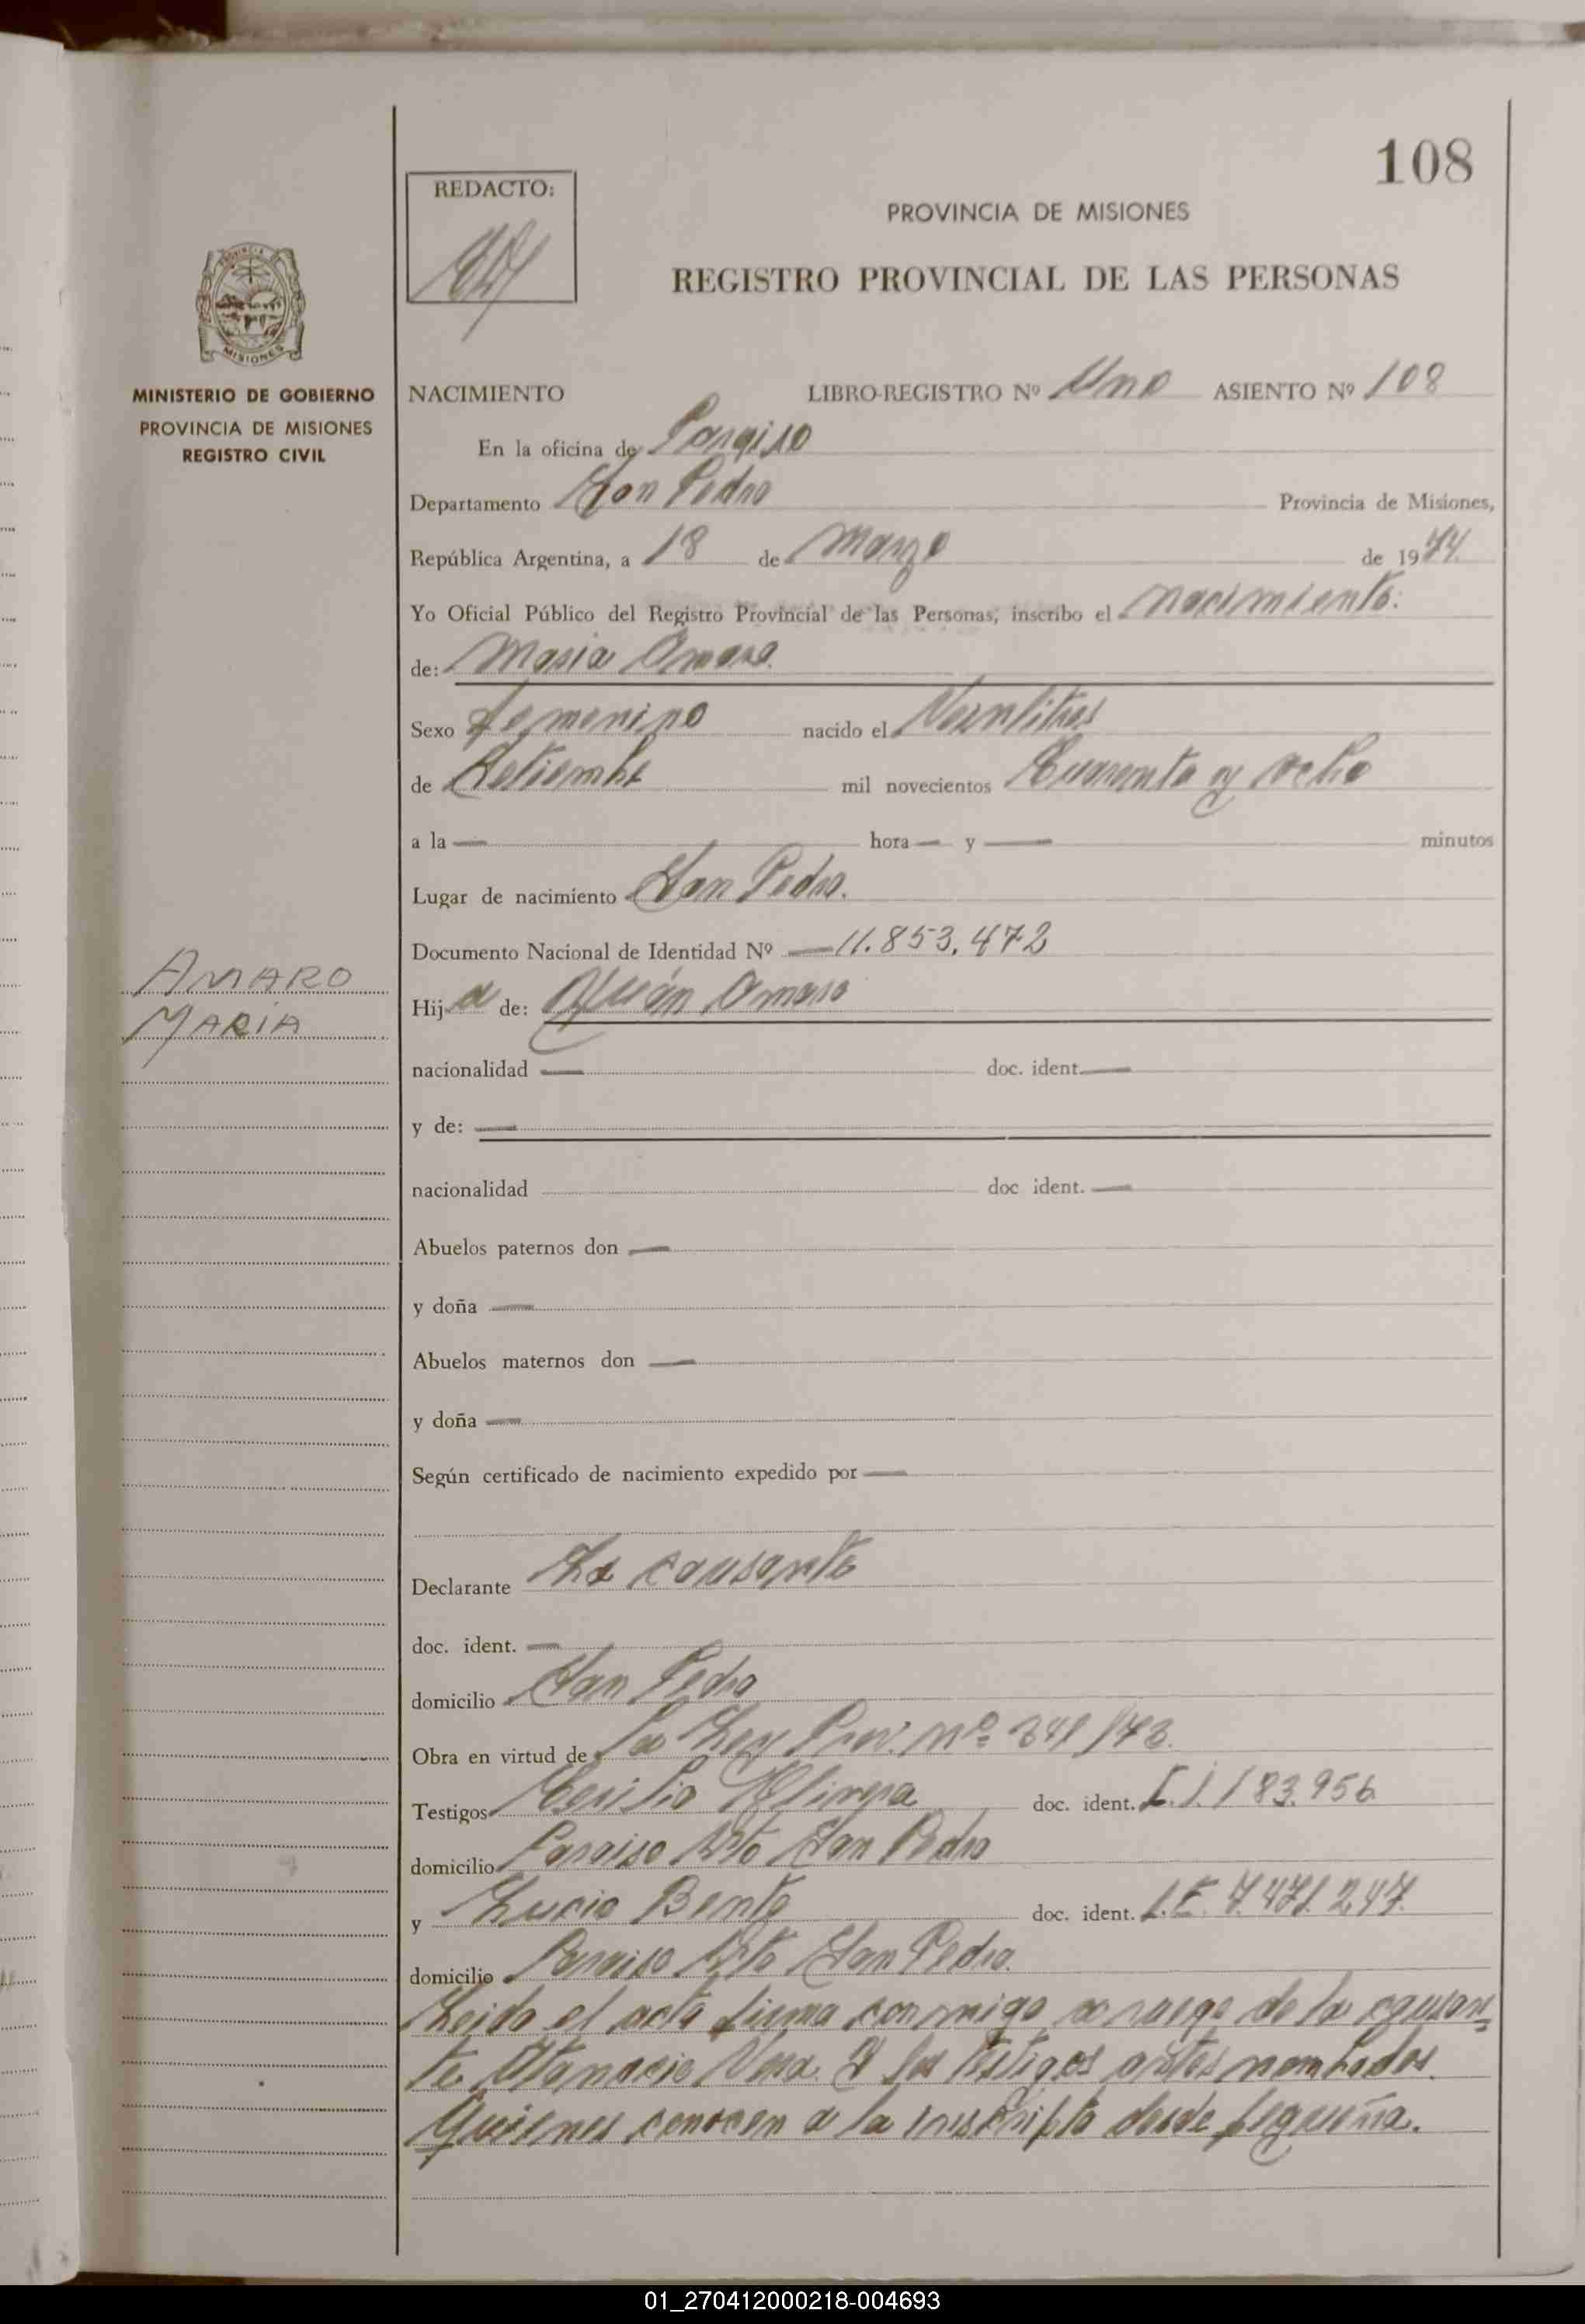 108
REDACTO:
PROVINCIA DE MISIONES
REGISTRO PROVINCIAL DE LAS PERSONAS
MISIONES
MINISTERIO DE GOBIERNO
PROVINCIA DE MISIONES
REGISTRO CIVIL
NACIMIENTO LIBRO-REGISTRO Nº Uno ASIENTO Nº 108
En la oficina de Paraiso
Departamento San Pedro Provincia de Misiones,
República Argentina, a 18 de Marzo de 1974
Yo Oficial Público del Registro Provincial de las Personas, inscribo el nacimiento.
de: Maria Amaro
Sexo femenino nacido el Veintitres
de Setiembre mil novecientos Cuarenta y ocho
a la — hora — y — minutos
Lugar de nacimiento San Pedro.
Documento Nacional de Identidad Nº — 11.853.472
AMARO
MARIA
Hija de: Amaro
nacionalidad — doc. ident. —
y de: —
nacionalidad doc ident. —
Abuelos paternos don —
y doña —
Abuelos maternos don —
y doña —
Según certificado de nacimiento expedido por —
Declarante La causante
doc. ident. —
domicilio San Pedro
Obra en virtud de la Ley Prov. Nº
Testigos doc. ident. 183.956
domicilio Paraiso Dto San Pedro
y Lucio Bento doc. ident. L.E. 7.471.247.
domicilio Paraiso Dto San Pedro.
Leida el acta firma conmigo a ruego de la causan-
te Atanacio Vera. Y los testigos antes nombrados.
Quienes conocen a la inscripta desde pequeña.
01_270412000218-004693